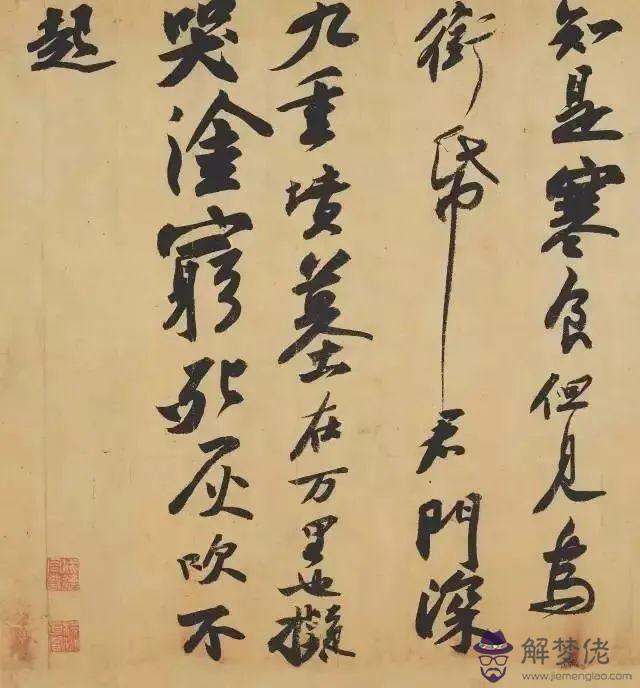 知是寒食但見烏
銜帋君門深
九重墳墓在万里也擬
哭塗窮死灰吹不
起
解梦佬
www.jiemenglao.com